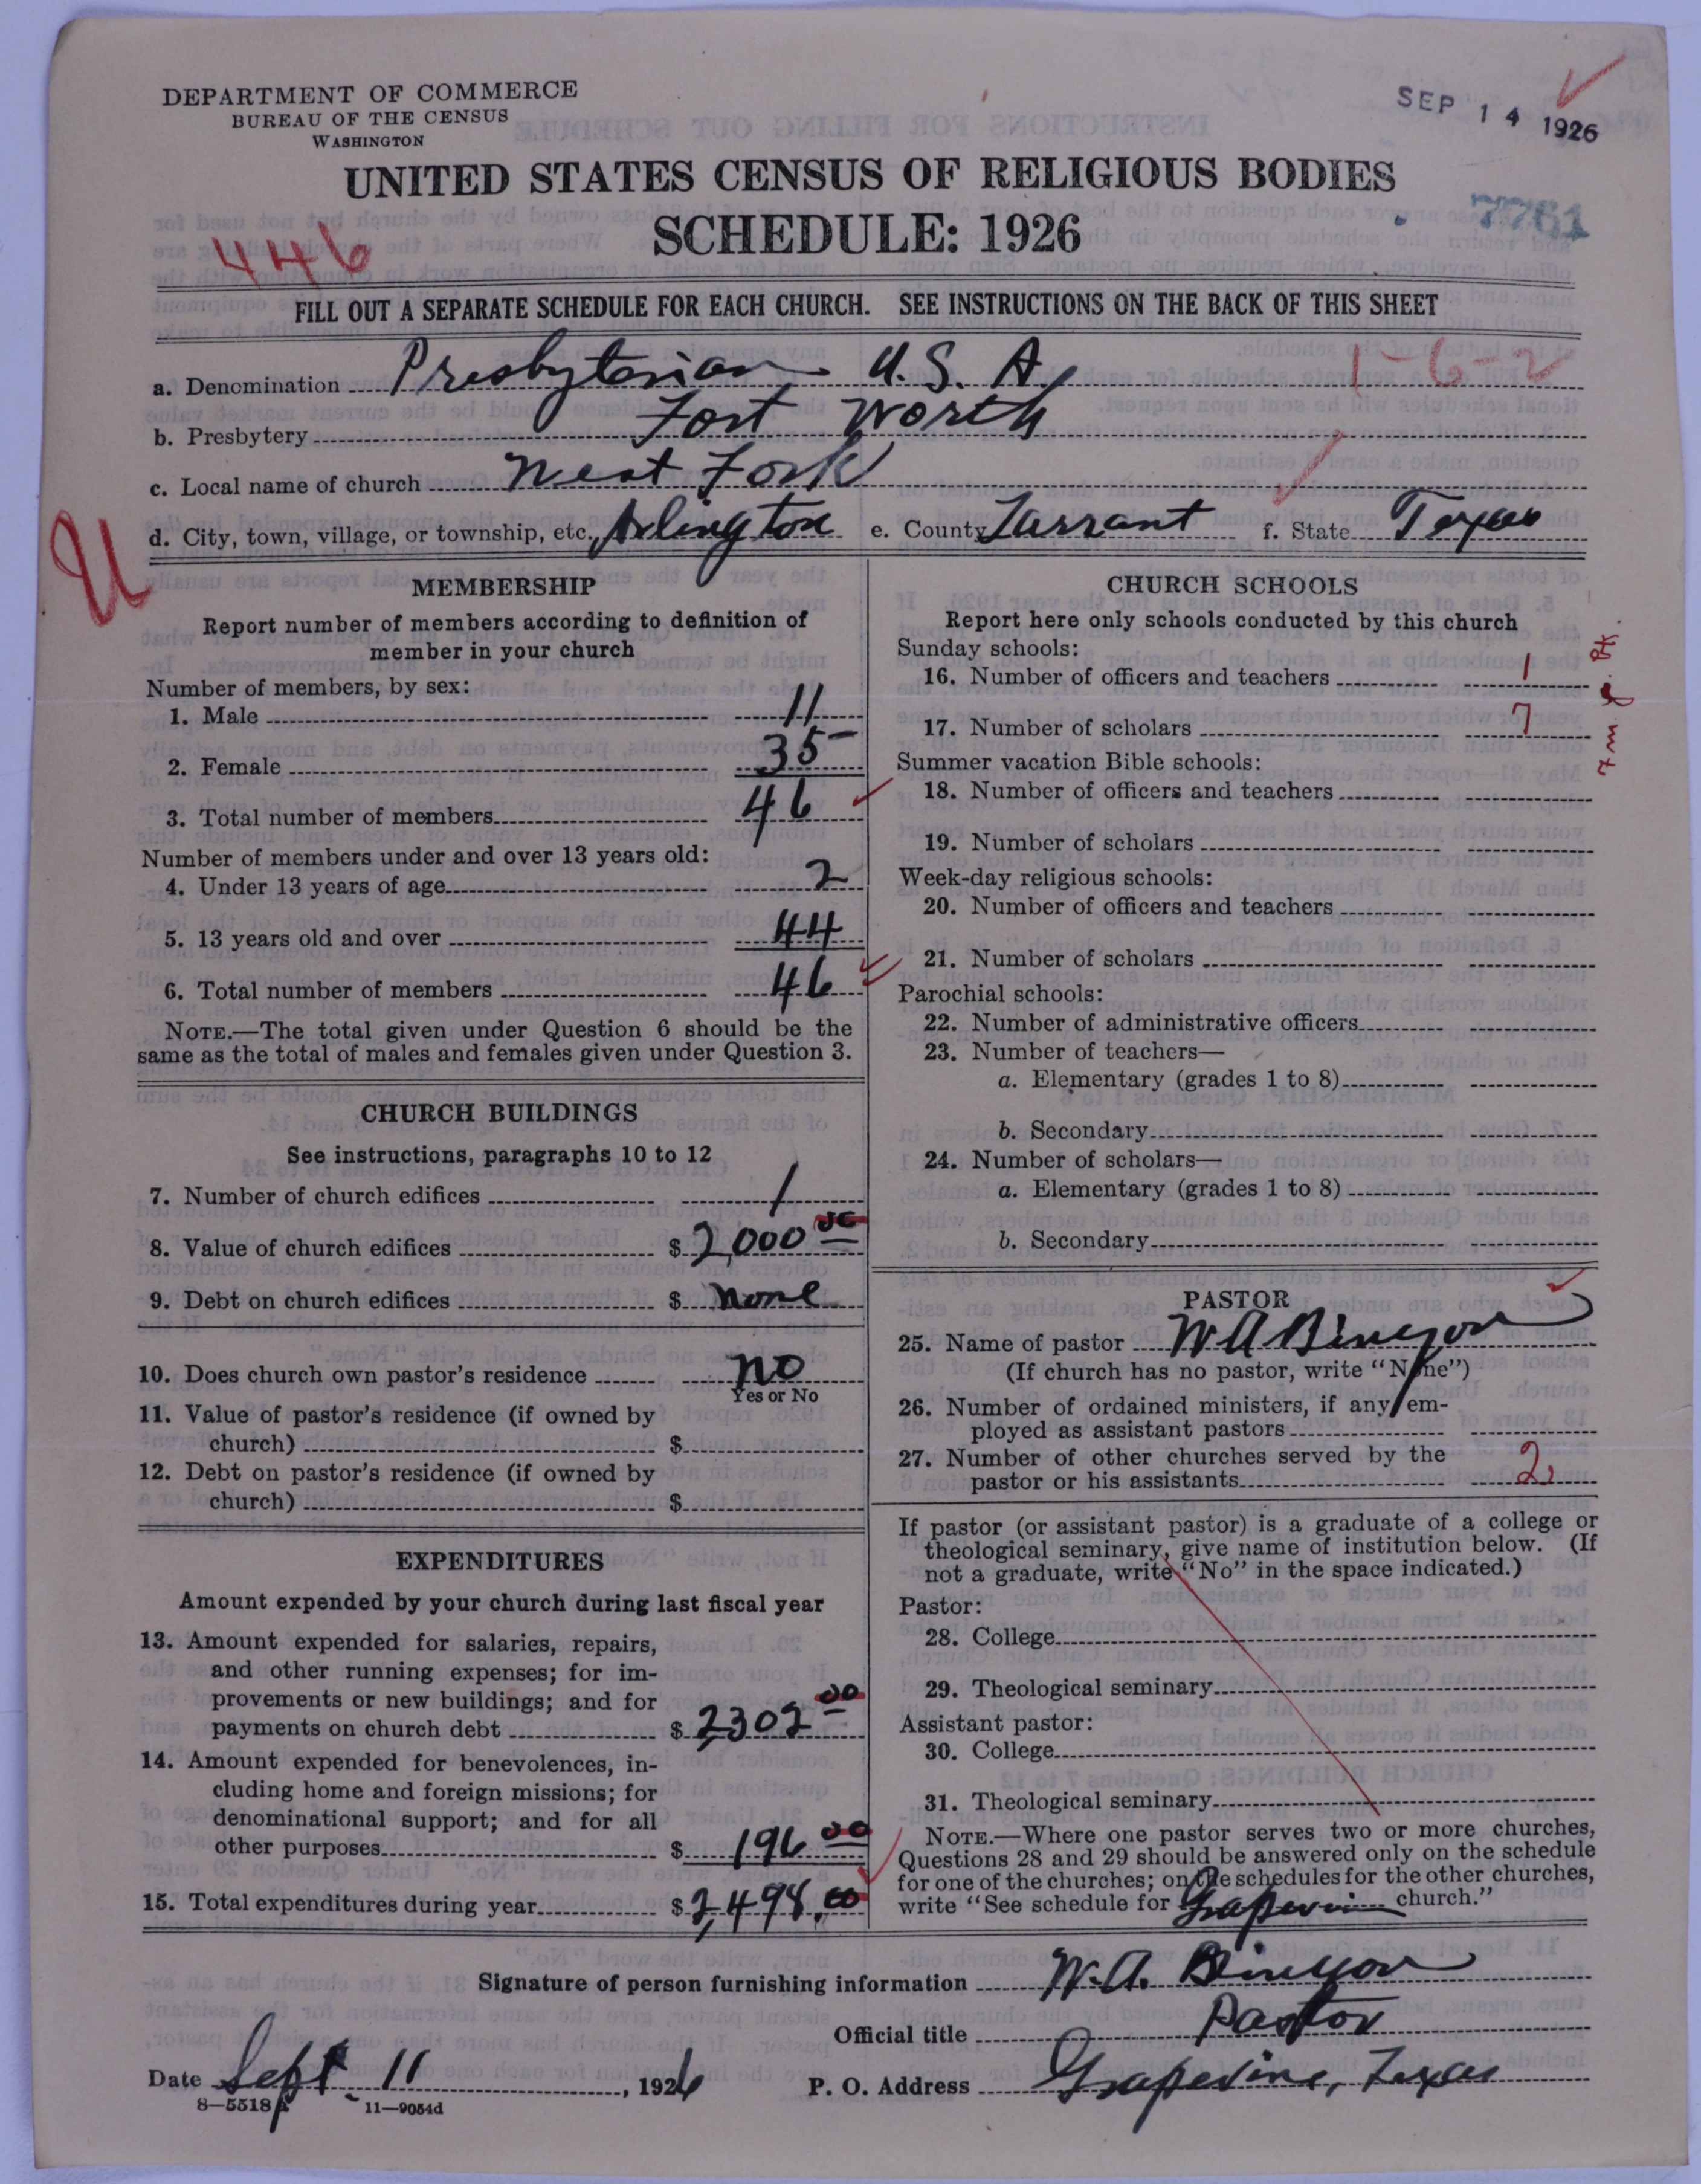 DEPARTMENT OF COMMERCE
BUREAU OF THE CENSUS
WASHINGTON
SEP 14 1926
UNITED STATES CENSUS OF RELIGIOUS BODIES
SCHEDULE: 1926
7761
446
FILL OUT A SEPARATE SCHEDULE FOR EACH CHURCH. SEE INSTRUCTIONS ON THE BACK OF THIS SHEET
a. Denomination Presbyterian U.S.A. 1-6-2
b. Presbytery Fort Worth
c. Local name of church West Fork
d. City, town, village, or township, etc. Arlington e. County Tarrant f. State Texas
U
MEMBERSHIP
Report number of members according to definition of
member in your church
Number of members, by sex:
1. Male 11
2. Female 35
3. Total number of members 46
Number of members under and over 13 years old:
4. Under 13 years of age 2
5. 13 years old and over 44
6. Total number of members 46
NOTE.—The total given under Question 6 should be the
same as the total of males and females given under Question 3.
CHURCH BUILDINGS
See instructions, paragraphs 10 to 12
7. Number of church edifices 1
8. Value of church edifices $ 2,000 00
9. Debt on church edifices $ None
10. Does church own pastor's residence no
Yes or No
11. Value of pastor's residence (if owned by
church) $
12. Debt on pastor's residence (if owned by
church) $
EXPENDITURES
Amount expended by your church during last fiscal year
13. Amount expended for salaries, repairs,
and other running expenses; for im-
provements or new buildings; and for
payments on church debt $ 2,302 00
14. Amount expended for benevolences, in-
cluding home and foreign missions; for
denominational support; and for all
other purposes $ 196 00
15. Total expenditures during year $ 2,498.00
CHURCH SCHOOLS
Report here only schools conducted by this church
Sunday schools:
16. Number of officers and teachers 1
17. Number of scholars 7
Summer vacation Bible schools:
18. Number of officers and teachers
19. Number of scholars
Week-day religious schools:
20. Number of officers and teachers
21. Number of scholars
Parochial schools:
22. Number of administrative officers
23. Number of teachers—
a. Elementary (grades 1 to 8)
b. Secondary
24. Number of scholars—
a. Elementary (grades 1 to 8)
b. Secondary
PASTOR
25. Name of pastor W A Binyon
(If church has no pastor, write "None")
26. Number of ordained ministers, if any em-
ployed as assistant pastors
27. Number of other churches served by the
pastor or his assistants 2
If pastor (or assistant pastor) is a graduate of a college or
theological seminary, give name of institution below. (If
not a graduate, write "No" in the space indicated.)
Pastor:
28. College
29. Theological seminary
Assistant pastor:
30. College
31. Theological seminary
NOTE.—Where one pastor serves two or more churches,
Questions 28 and 29 should be answered only on the schedule
for one of the churches; on the schedules for the other churches,
write "See schedule for Grapevine church."
Signature of person furnishing information W. A. Binyon
Official title Pastor
Date Sept. 11, 1926 P. O. Address Grapevine, Texas
8—5518 A 11—9054d